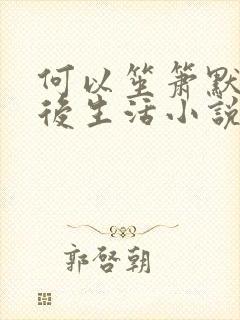 何以笙箫默
後生活小說
郭啓朝